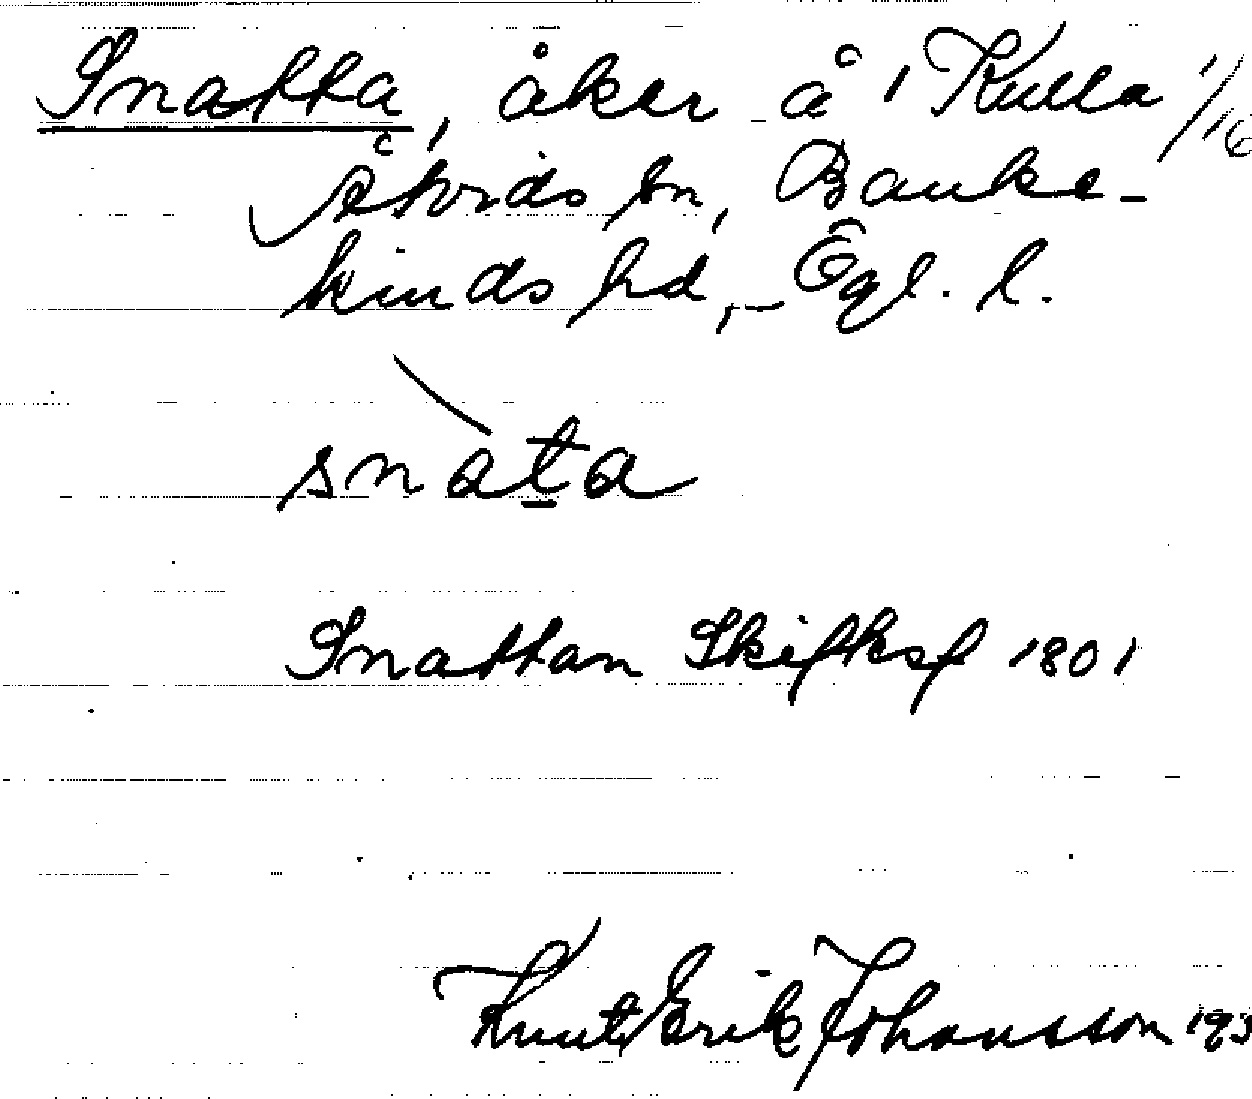 Snatta, åker å 1 Kulla 1/16
Åtvids sn, Banke-
kinds hd, Ögl. l.
snata
Snattan Skifksf 1801
Knut Erik Johansson 193